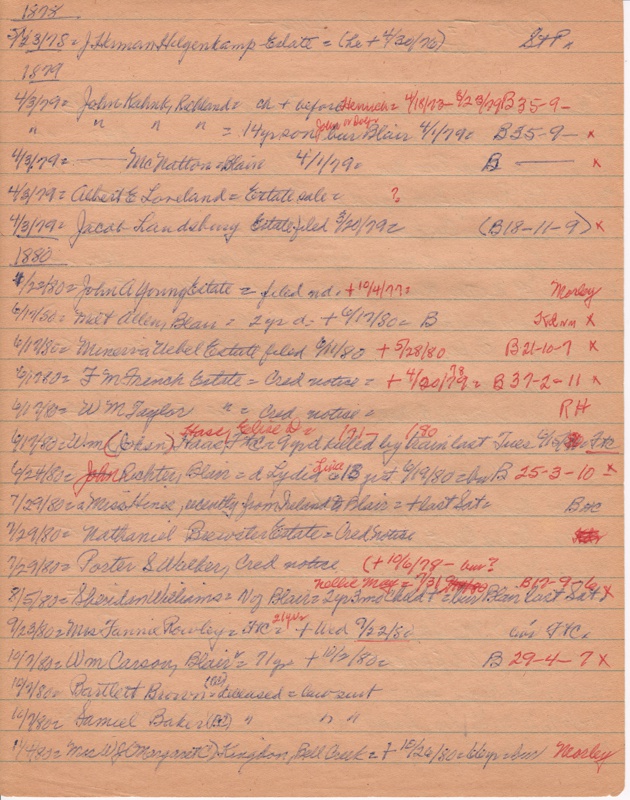 1878
5/23/78 = J. Herman Hilgenkamp Estate = (he + 4/30/76) St P x
1879
4/3/79 = John Kuhnk, Richland = ch + before Henrich = 4/18/73 - 2/23/79 B35-9-
" " " " = 14 yr son John bur Blair 4/1/79 = B35-9- x
4/3/79 = McNatton = Blair 4/1/79 = B x
4/3/79 = Albert E Loveland = Estate sale = ?
4/3/79 = Jacob Landsbury Estate filed 3/20/79 = (B18-11-9) x
1880
4/22/80 = John A Young Estate = filed nd. + 10/4/77 = Morley
6/17/80 = Milt Allen, Blair = 2 yr d. = + 6/17/80 = B x
6/17/80 = Minerva Uebel Estate filed 6/11/80 + 5/28/80 B21-10-7 x
6/17/80 = F M French Estate = Cred notice = + 4/20/79 78 = B 37-2-11 x
6/17/80 = W M Taylor " = Cred notice = RH
Hase, Elise D = 1871 - 1880
6/17/80 = Wm Haase, Ft C = 9 yr d killed by train last Tues FtC
6/24/80 = John Richter, Blair = d Lydia Livia 13 yr + 6/19/80 = bur B 25-3-10 x
7/29/80 = a Miss Hines, recently from Ireland to Blair = + last Sat = B
7/29/80 = Nathaniel Brewster Estate = Cred notice
7/29/80 = Porter S Walker, Cred notice (+ 10/6/78 - bur?
Nellie May = 7/31/80 B17-9-6
8/5/80 = Sheridan Williams = N of Blair = 2 yr 3 mo child + = bur Blair last Sat x
9/23/80 = Mrs Fannie Rowley = FtC = 21 yrs + Wed 9/22/80 bur FtC.
10/7/80 = Wm Carson, Blair = 71 yr + 10/2/80 = B 29-4-7 x
10/7/80 = Bartlett Brown = deceased = law suit
10/7/80 = Samuel Baker " " "
11/4/80 = Mrs W J (Margaret) Kingdon, Bell Creek = + 10/26/80 = 66 yr = bur Morley